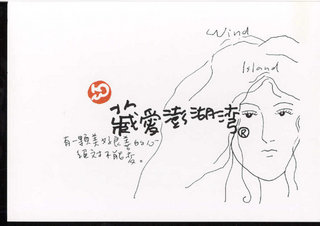 Wind
Island
藏愛澎湖灣®
有一顆美好良善的心
絕對不能丟。